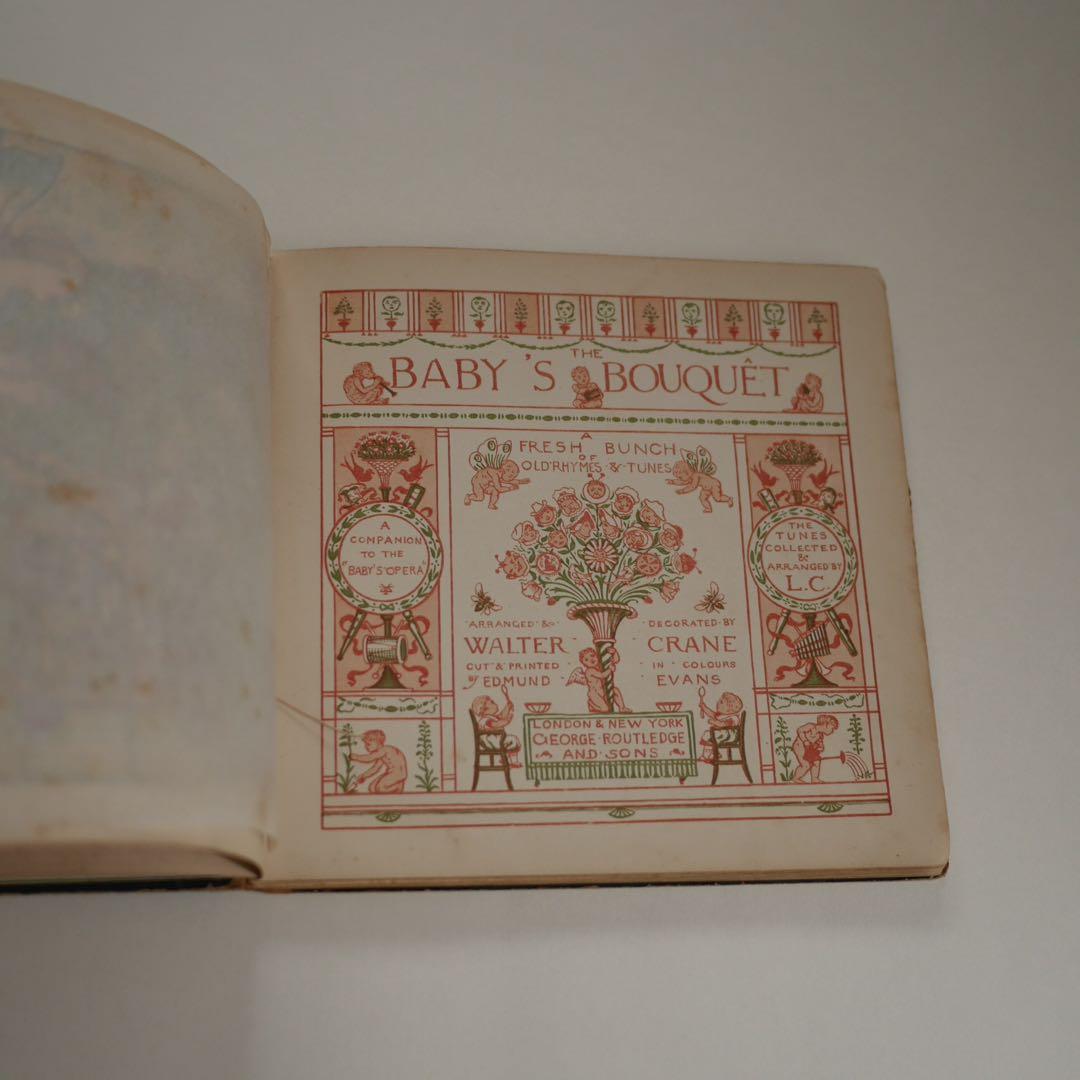 THE
BABY'S BOUQUÊT
A
FRESH BUNCH
OF
OLD RHYMES & TUNES
A
COMPANION
TO THE
"BABY'S OPERA"
THE
TUNES
COLLECTED
&
ARRANGED BY
L.C.
ARRANGED & DECORATED BY
WALTER CRANE
CUT & PRINTED IN COLOURS
BY EDMUND EVANS
LONDON & NEW YORK
GEORGE ROUTLEDGE
AND SONS